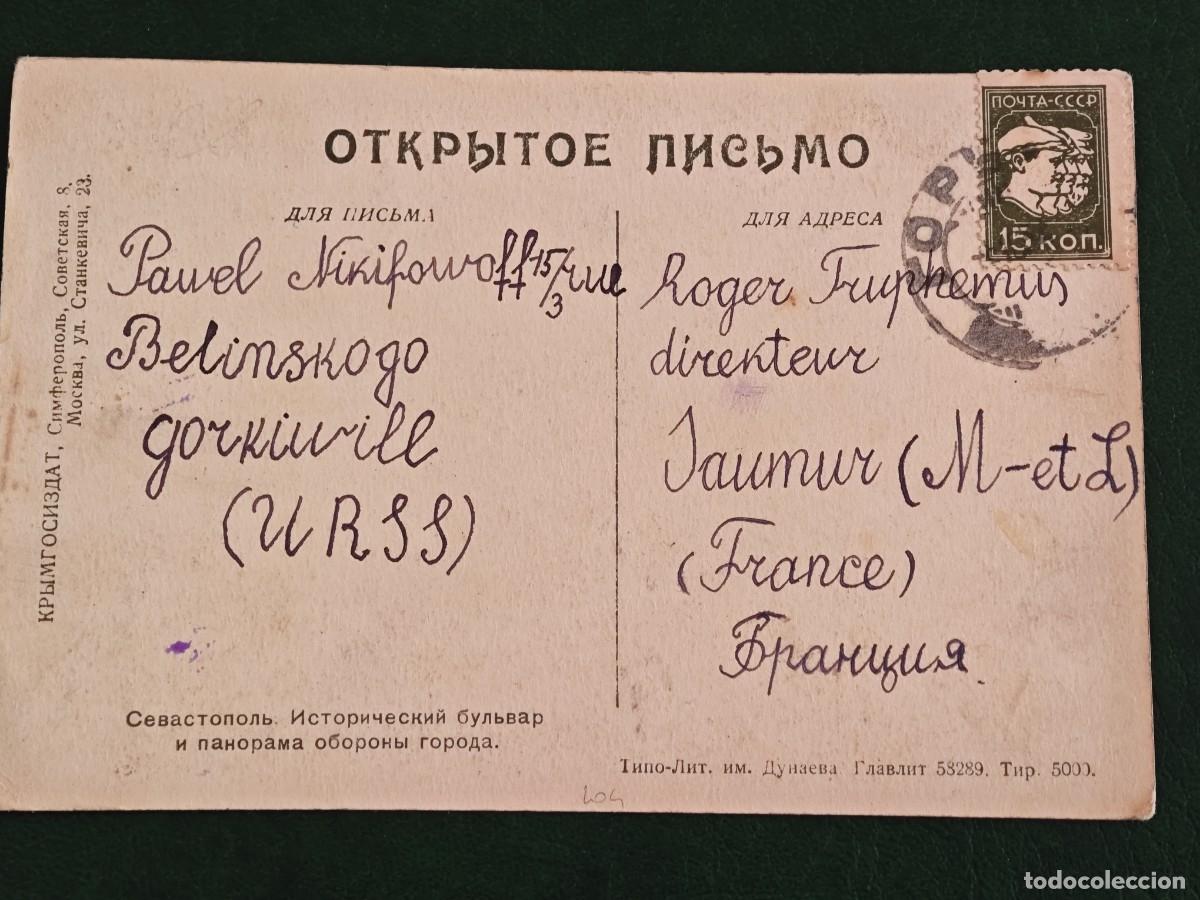 ОТКРЫТОЕ ПИСЬМО
ПОЧТА-СССР
15 КОП.
КРЫМГОСИЗДАТ, Симферополь, Советская, 8.
Москва, ул. Станкевича, 23.
ДЛЯ ПИСЬМА
Pawel Nikifowoff 15/3 rue
Belinskogo
gorkiwill
(URSS)
ДЛЯ АДРЕСА
Roger Truphemus
direkteur
Saumur (M-et L)
(France)
Франция.
Севастополь. Исторический бульвар
и панорама обороны города.
Типо-Лит. им. Дунаева Главлит 58289. Тир. 5000.
404
todocoleccion